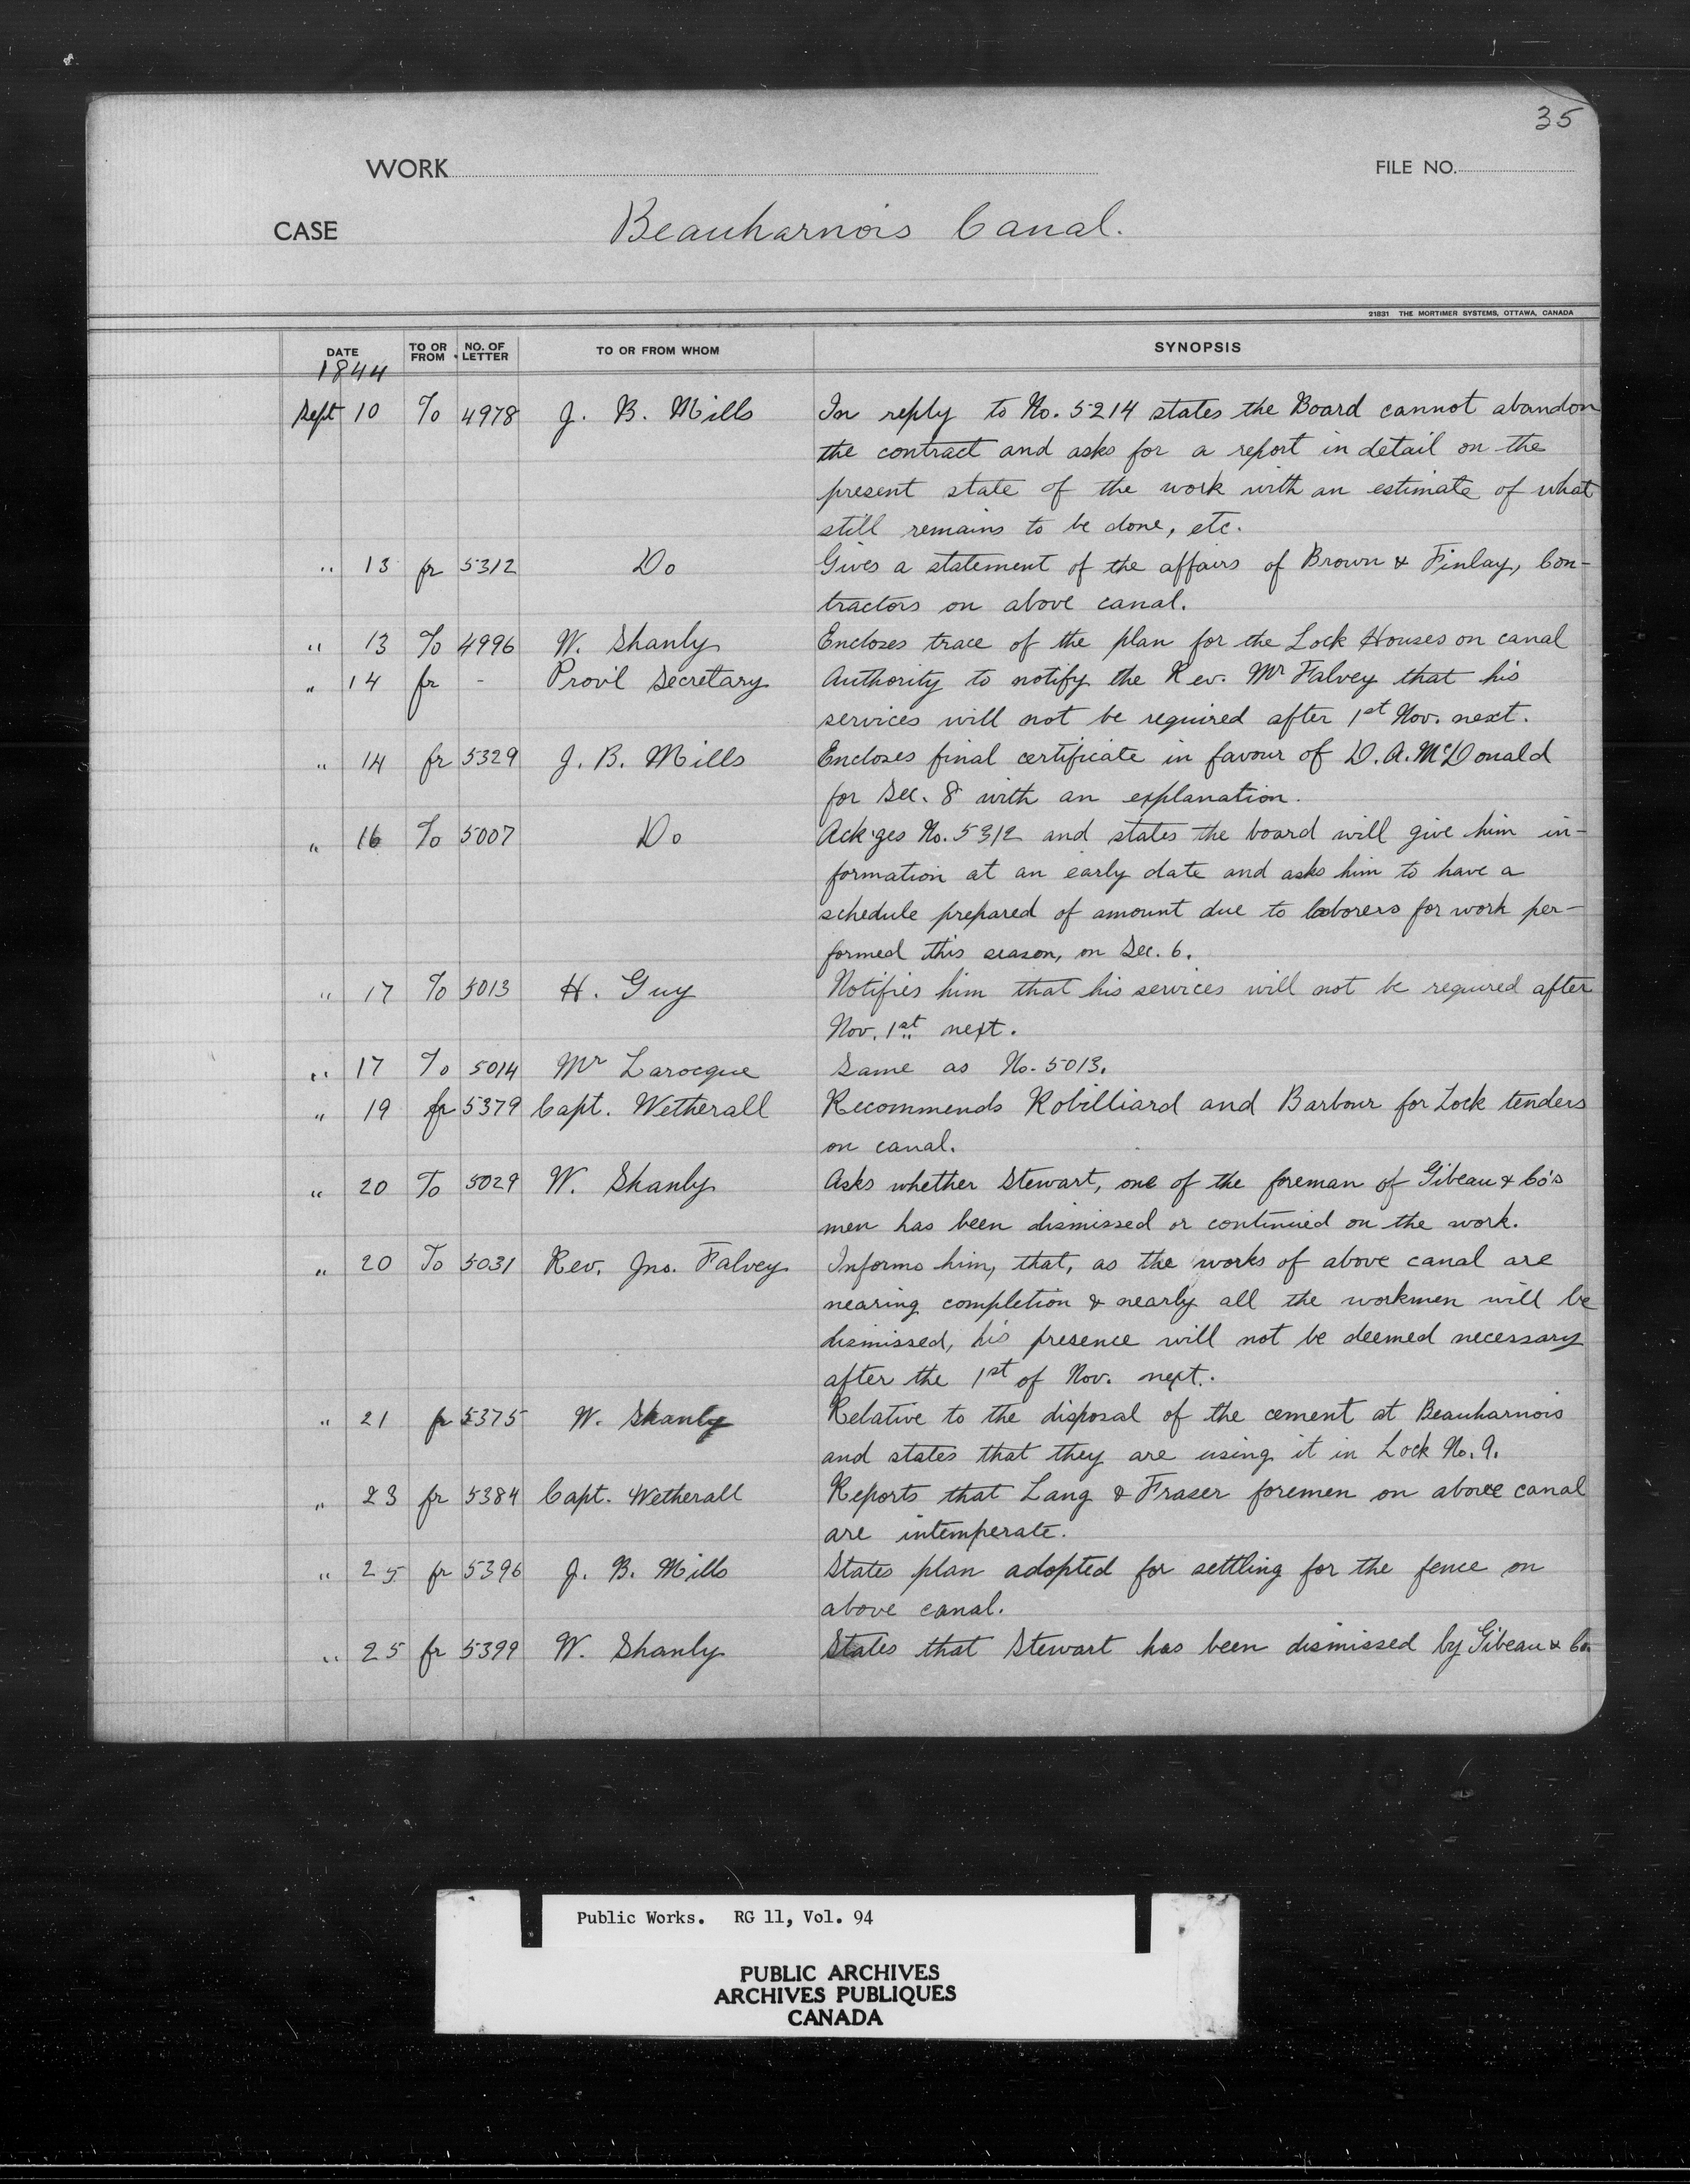 35
WORK FILE NO.
CASE Beauharnois Canal.
21831 THE MORTIMER SYSTEMS, OTTAWA, CANADA
DATE TO OR FROM NO. OF LETTER TO OR FROM WHOM SYNOPSIS
1844
Sept 10 To 4978 J. B. Mills In reply to No. 5214 states the Board cannot abandon
the contract and asks for a report in detail on the
present state of the work with an estimate of what
still remains to be done, etc.
" 13 fr 5312 Do Gives a statement of the affairs of Brown & Finlay, Con-
tractors on above canal.
" 13 To 4996 W. Shanly Encloses trace of the plan for the Lock Houses on canal
" 14 fr - Provil Secretary Authority to notify the Rev. Mr Falvey that his
services will not be required after 1st Nov. next.
" 14 fr 5329 J. B. Mills Encloses final certificate in favour of D. A. McDonald
for Sec. 8 with an explanation.
" 16 To 5007 Do Ack'ges No. 5312 and states the board will give him in-
formation at an early date and asks him to have a
schedule prepared of amount due to laborers for work per-
formed this season, on Sec. 6.
" 17 To 5013 H. Guy Notifies him that his services will not be required after
Nov. 1st next.
" 17 To 5014 Mr Larocque Same as No. 5013.
" 19 fr 5379 Capt. Wetherall Recommends Robilliard and Barbour for Lock tenders
on canal.
" 20 To 5029 W. Shanly Asks whether Stewart, one of the foreman of Gibeau & Co's
men has been dismissed or continued on the work.
" 20 To 5031 Rev. Jno. Falvey Informs him, that, as the works of above canal are
nearing completion & nearly all the workmen will be
dismissed, his presence will not be deemed necessary
after the 1st of Nov. next.
" 21 fr 5375 W. Shanly Relative to the disposal of the cement at Beauharnois
and states that they are using it in Lock No. 9.
" 23 fr 5384 Capt. Wetherall Reports that Lang & Fraser foremen on above canal
are intemperate.
" 25 fr 5396 J. B. Mills States plan adopted for settling for the fence on
above canal.
" 25 fr 5399 W. Shanly States that Stewart has been dismissed by Gibeau & Co.
Public Works. RG 11, Vol. 94
PUBLIC ARCHIVES
ARCHIVES PUBLIQUES
CANADA